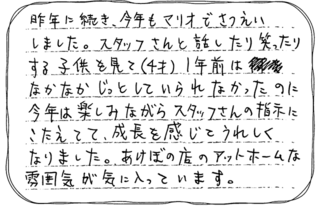 昨年に続き、今年もマリオでさつえい
しました。スタッフさんと話したり笑ったり
する子供を見て(4才)1年前は
なかなかじっとしていられなかったのに
今年は楽しみながらスタッフさんの指示に
こたえてて、成長を感じてうれしく
なりました。あけぼの店のアットホームな
雰囲気が気に入っています。